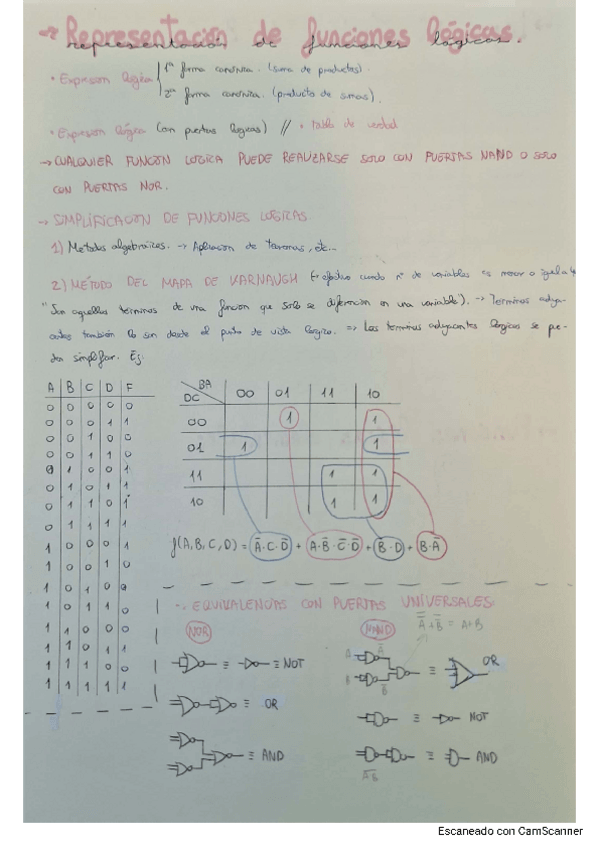 → Representación de funciones lógicas.
representación de funciones lógicas.
• Expresión lógica { 1ª forma canónica. (suma de productos).
2ª forma canónica. (producto de sumas).
• Expresión lógica (con puertas lógicas) // • tabla de verdad
→ CUALQUIER FUNCIÓN LOGICA PUEDE REALIZARSE SOLO CON PUERTAS NAND O SOLO
CON PUERTAS NOR.
→ SIMPLIFICACION DE FUNCIONES LOGICAS
1) Metodos algebraicos. → Aplicacion de teoremas, etc...
2) MÉTODO DEL MAPA DE VARNAUGH (→ efectivo cuando nº de variables es menor o igual a 4
" Son aquellos términos de una función que solo se diferencian en una variable). → Terminos adya-
centes también lo son desde el punto de vista lógico. ⇒ Los terminos adyacentes lógicos se pue-
den simplificar. Ej:
A B C D F
0 0 0 0 0
0 0 0 1 1
0 0 1 0 0
0 0 1 1 0
0 1 0 0 1
0 1 0 1 1
0 1 1 0 1
0 1 1 1 1
1 0 0 0 1
1 0 0 1 0
1 0 1 0 0
1 0 1 1 0
1 1 0 0 0
1 1 0 1 1
1 1 1 0 0
1 1 1 1 1
BA
DC 00 01 11 10
00 1 1
01 1 1
11 1 1
10 1 1
f(A,B,C,D) = Ā·C·D̄ + A·B̄·C̄·D̄ + B·D + B·Ā
-. EQUIVALENCIAS CON PUERTAS UNIVERSALES:
NOR NAND
A̿+B̿ = A+B
A Ā
B B̄
≡ ≡ NOT
≡ OR
≡ OR
≡ ≡ NOT
≡ AND
≡ ≡ AND
A̅B̅
Escaneado con CamScanner